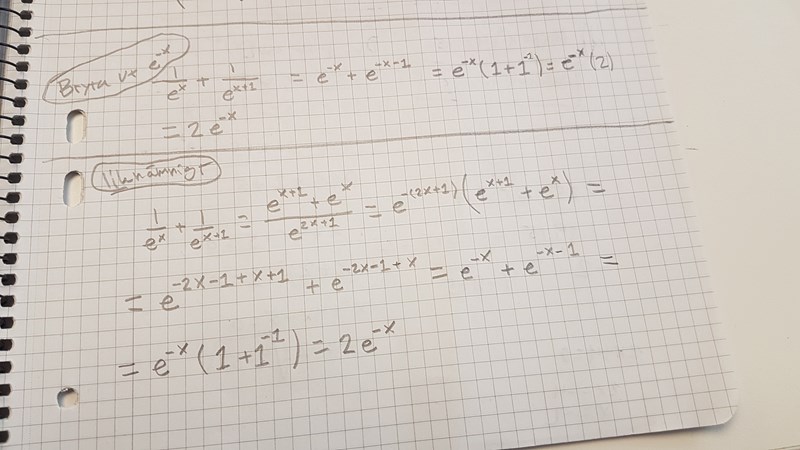 Bryta ut e^-x
1/e^x + 1/e^(x+1) = e^-x + e^(-x-1) = e^-x (1+1^-1) = e^-x (2)
= 2e^-x
liknämnigt
1/e^x + 1/e^(x+1) = (e^(x+1) + e^x)/e^(2x+1) = e^-(2x+1) (e^(x+1) + e^x) =
= e^(-2x-1+x+1) + e^(-2x-1+x) = e^-x + e^(-x-1) =
= e^-x (1+1^-1) = 2e^-x